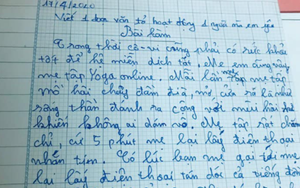 17/4/2020
Viết 1 đoạn văn tả hoạt động 1 người mà em yêu
Bài làm
Trong thời cô-vi cũng phải có sức khỏe
tốt để hệ miễn dịch tốt. Mẹ em cũng vậy
mẹ tập Yoga online. Mỗi lần mẹ tập mẹ
mồ hôi chảy đầm đìa, mẹ của rõ là như
răng thần đanh ra cộng với mùi hôi
khiến không ai dám nó. Mẹ tập rất chăm
chỉ, cứ 5 phút mẹ lại lấy điện thoại
nhắn tin. Có lúc bạn mẹ gọi tới mẹ
lại lấy điện thoại tán dóc cả